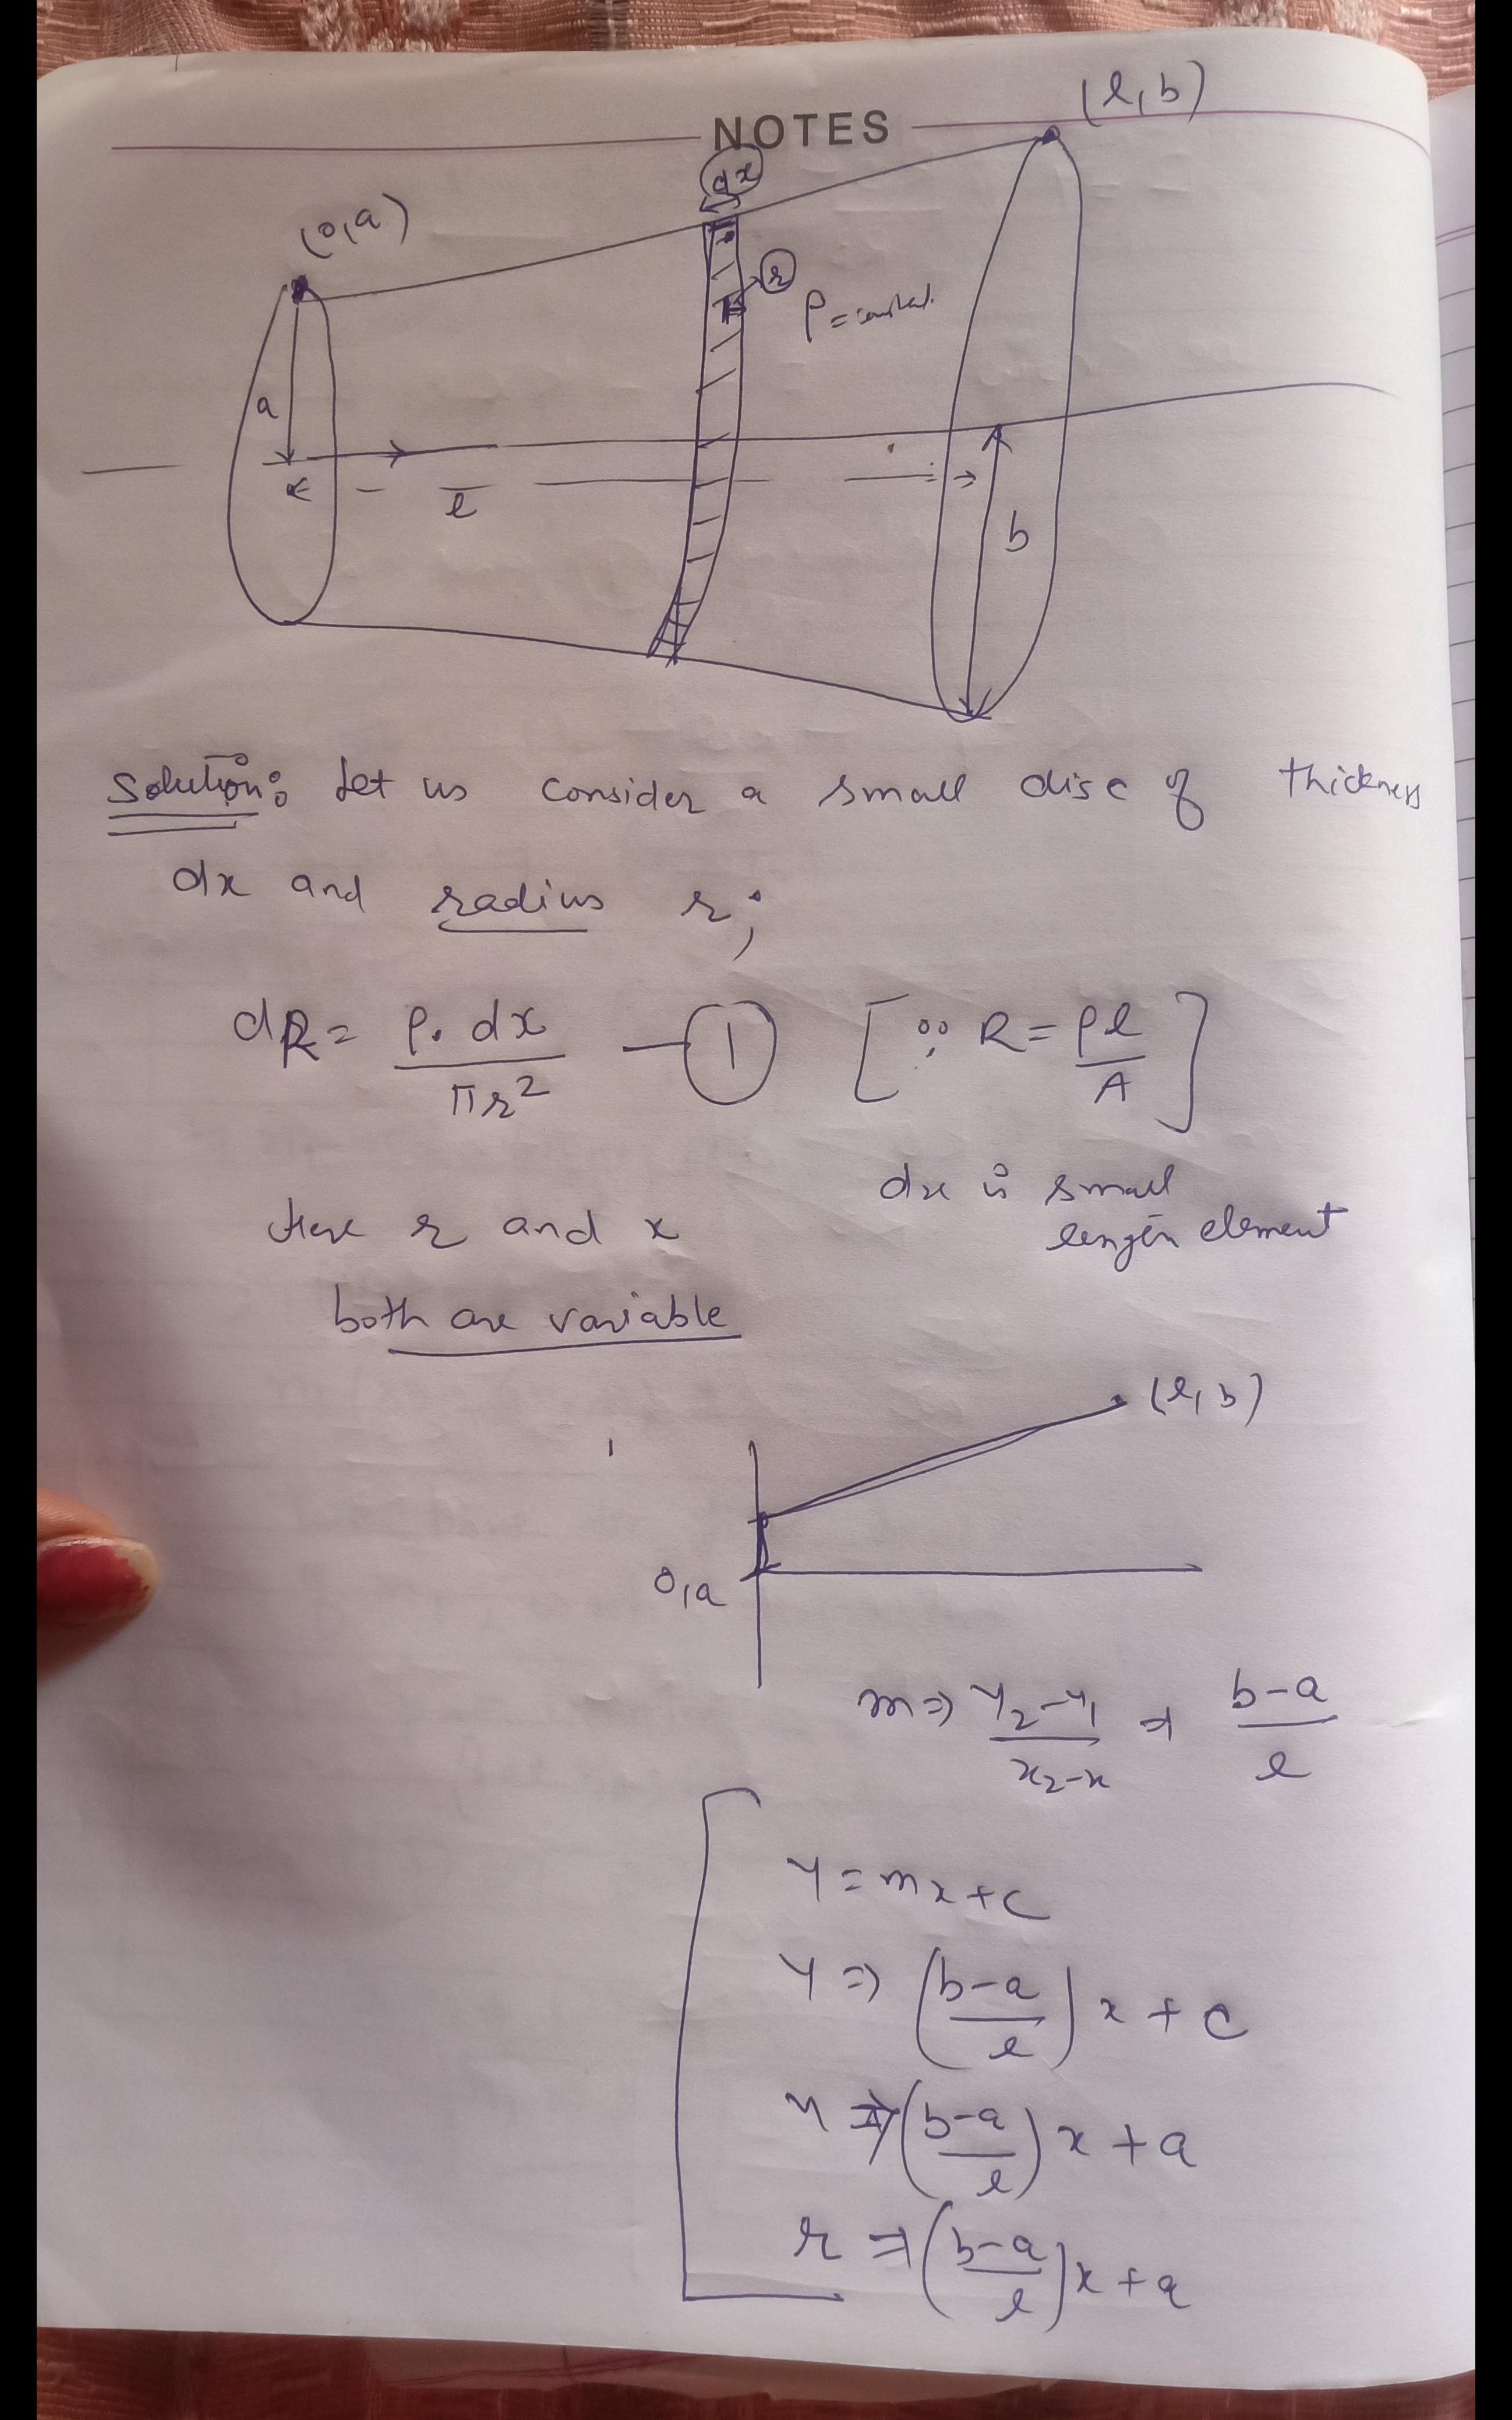 NOTES
(l, b)
dx
(0, a)
r
ρ = constant.
a
l
b
Solution: Let us consider a small disc of thickness
dx and radius r;
dR = ρ. dx / πr² — ① [∵ R = ρl / A]
dx is small
length element
Here r and x
both are variable
(l, b)
0, a
m ⇒ y₂-y₁ / x₂-x ⇒ b-a / l
y = mx + c
y ⇒ (b-a / l) x + c
y ⇒ (b-a / l) x + a
r ⇒ (b-a / l) x + a